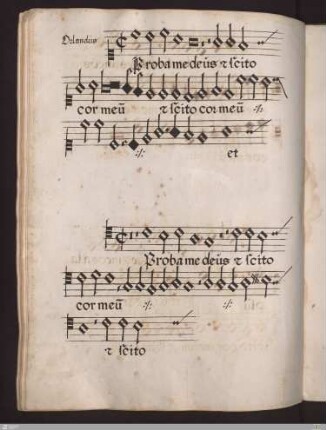 Orlandus
Proba me deus & scito
cor meū & scito cor meū :/:
:/: et
Proba me deus & scito
cor meū :/: :/:
& scito